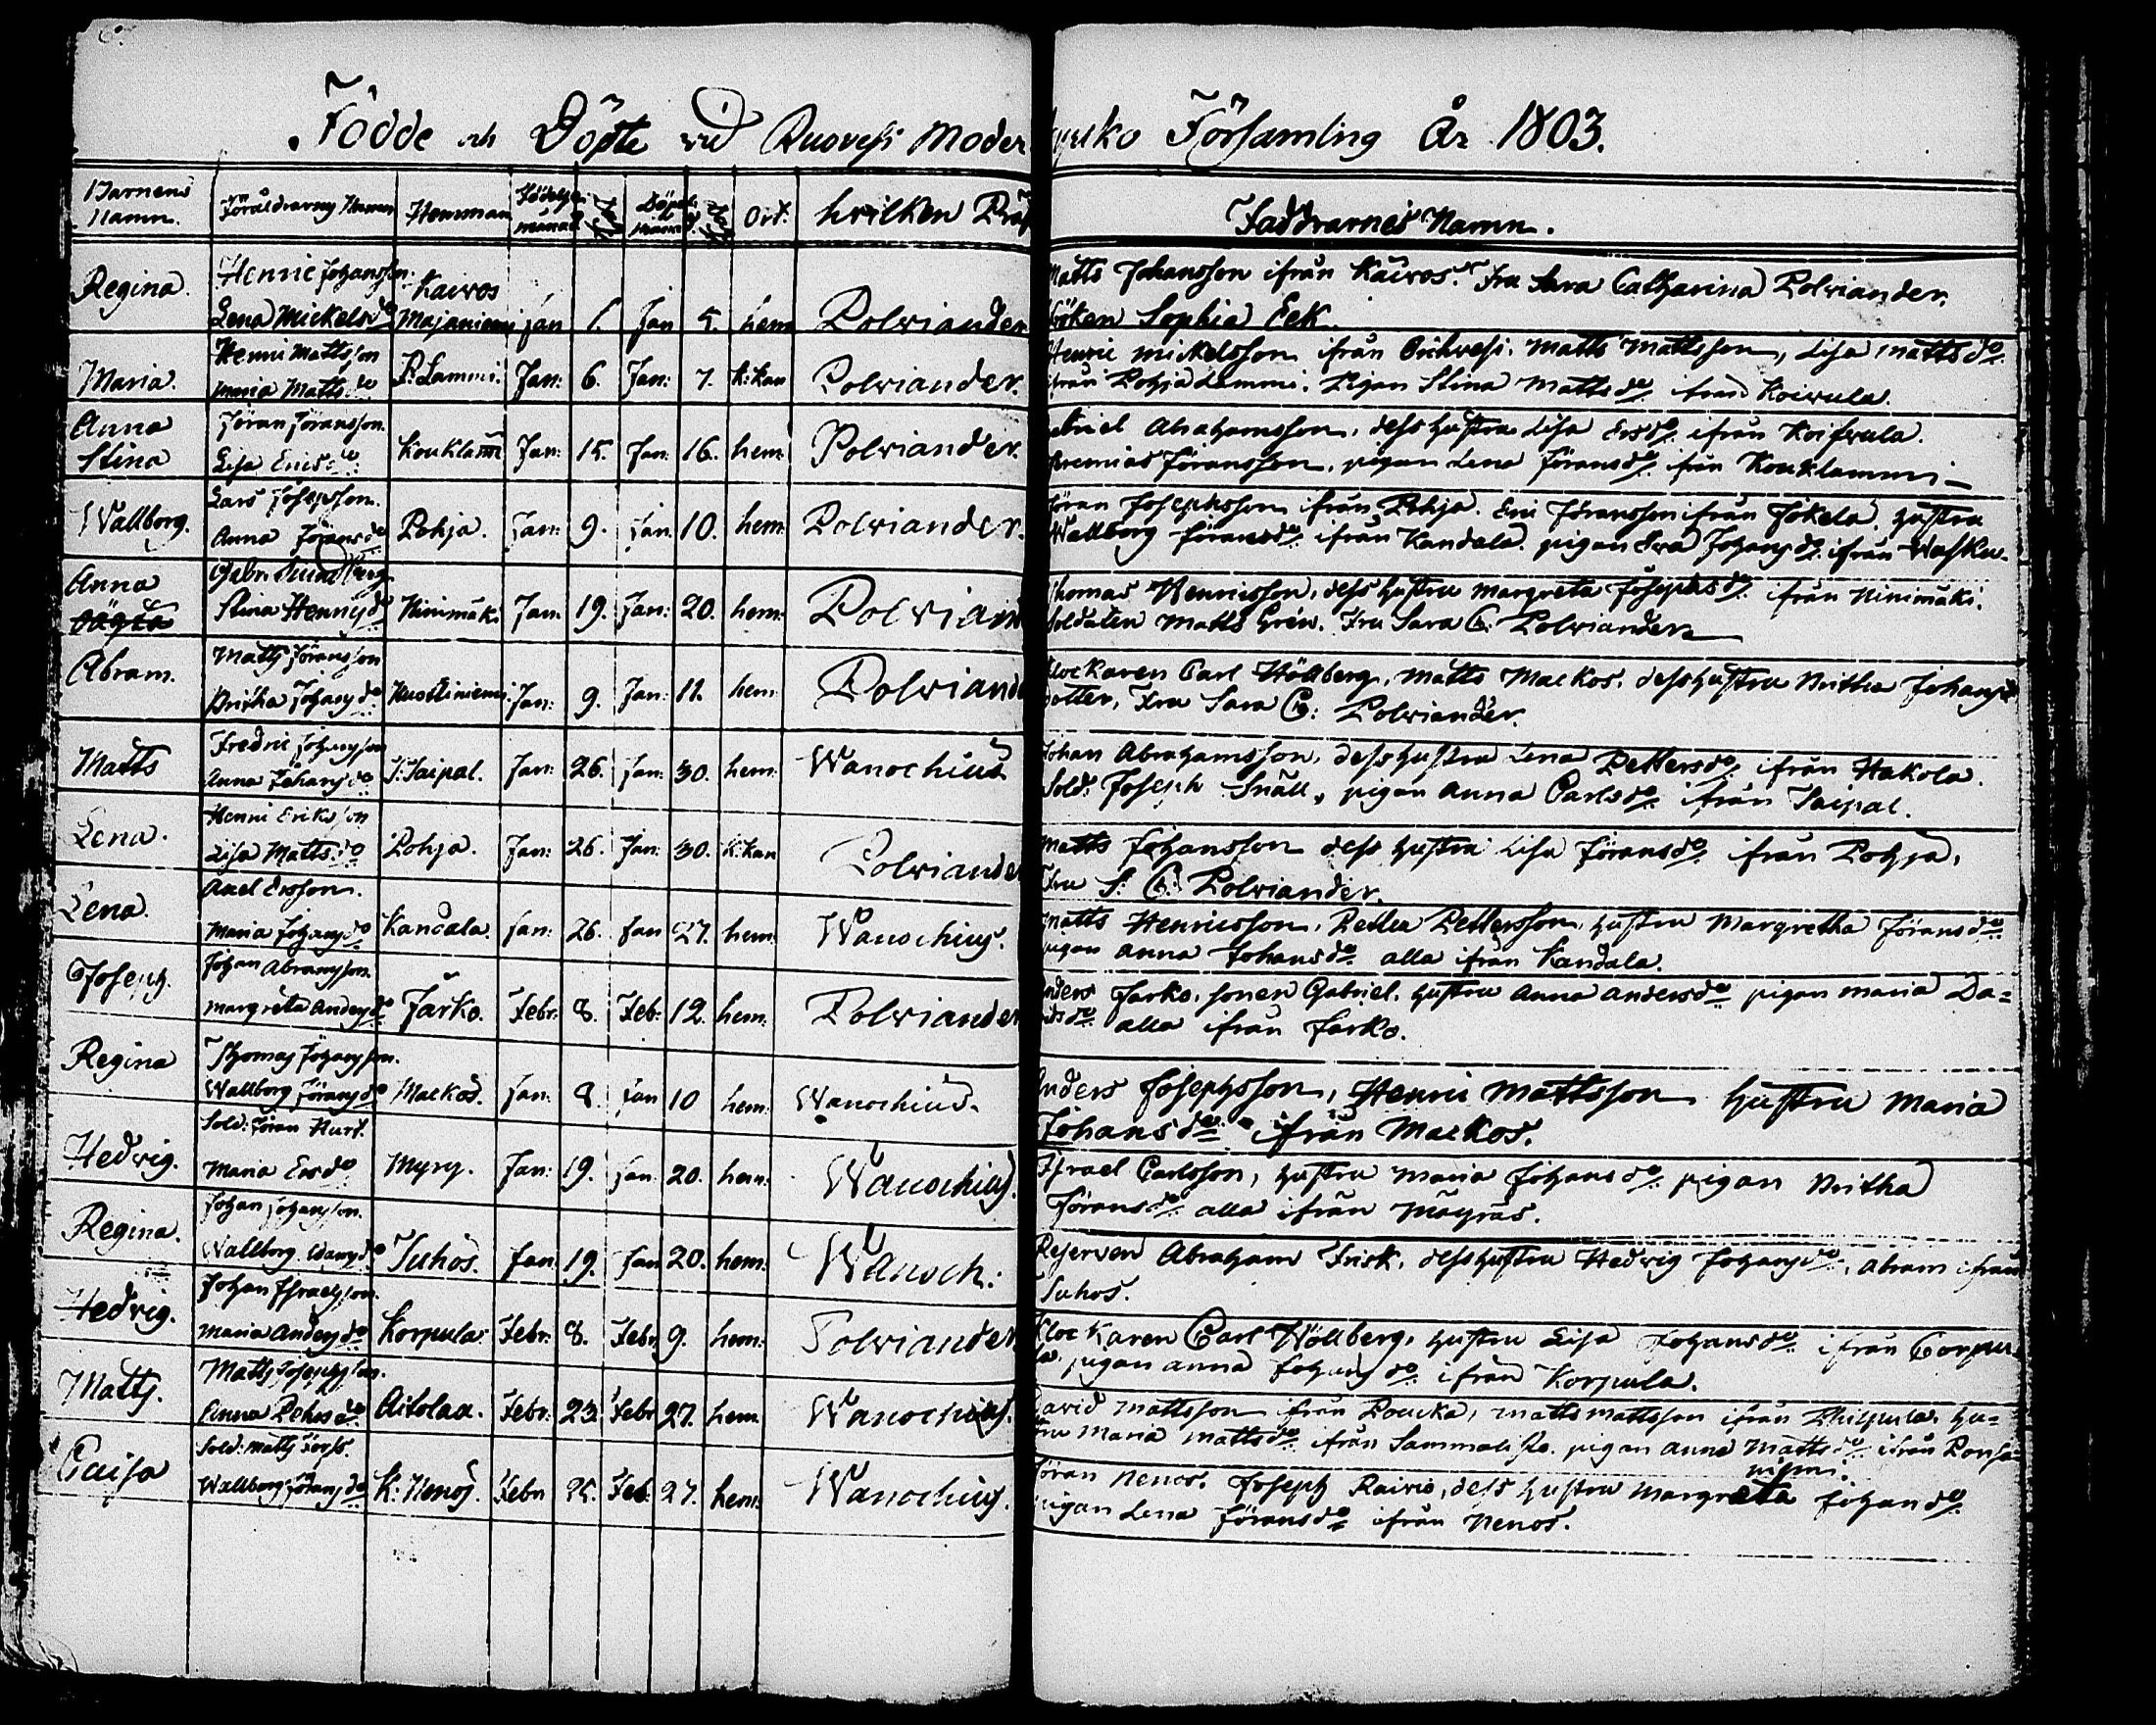 Födde och Döpte vid Ruovesi Moder kyrko Församling År 1803.
Barnens Namn. Föräldrarnas Namn Hemman Födelse månad Dag Döpel. månad Dag Ort. hvilken Prä Faddrarnes Namn.
Regina. Henric Johansson. Kairos Matts Johansson ifrån Kairos. Fru Sara Catharina Polviander,
Lena Mickelsdr Majaniemi Jan 6. Jan 9. hem Polviander Sophia Eek.
Maria. Henric Mattsson P. Lammi. Jan: 6. Jan: 7. k:kan Polviander. Henric Mickelsson ifrån Orihvesi. Matts Mattsson, Lisa Mattsdr
Maria Mattsdr ifrån Pohjalammi. Pigan Stina Mattsdr från Koivula.
Anna Stina Jöran Jöransson. Kouklam̄i Jan: 15. Jan: 16. hem: Polviander. Gabriel Abrahamsson, dess hustru Lisa Ersdr ifrån Koivula.
Lisa Ericsdr Jeremias Jöransson, pigan Lena Jöransdr ifrån Kouklammi
Wallborg. Lars Josepsson. Pohja. Jan: 9. Jan. 10. hem: Polviander. Jöran Josephsson ifrån Pohja. Eric Jöransson ifrån Jokela, hustru
Anna Jöransdr Wallborg Jöransdr ifrån Kandala. pigan Eva Johansdr ifrån
Anna Gabr Sundberg Ninimäki Jan: 19. Jan: 20. hem: Polvian Thomas Henricsson, dess hustru Margreta Josephsdr ifrån Ninimäki.
Stina Henricsdr Soldaten Matts Grén. Fru Sara C: Polviander
Abram. Matts Jöransson Ruostiniemi Jan: 9. Jan: 11. hem: Polviand Klockaren Carl Höllberg, Matts Mackos, dess hustru Britha Johans
Britha Johansdr dotter, Fru Sara C: Polviander.
Matts Fredric Johansson J: Jaipal. Jan: 26. Jan: 30. hem: Wanochius Johan Abrahamsson, dess hustru Lena Pettersdr ifrån Hakola.
Anna Johansdr Sold: Joseph Snäll, pigan Anna Carlsdr ifrån Jaipal.
Lena. Henric Eriksson Pohja. Jan: 26. Jan: 30. k:kan Polviande Matts Johansson dess hustru Lisa Jöransdr ifrån Pohja,
Lisa Mattsdr Fru S: C: Polviander.
Lena. Axel Ersson. Kandala. Jan: 26. Jan 27. hem: Wanochius. Matts Henricsson, Petter Pettersson, hustru Margretha Jöransdr
Maria Johansdr pigan Anna Johansdr alla ifrån Kandala.
Joseph. Johan Abramsson. Jarko. Febr: 8. Feb: 12. hem: Polviander Anders Jarko, sonen Gabriel, hustru Anna Andersdr pigan Maria Da=
Margreta Andersdr vidsdr alla ifrån Jarko.
Regina Thomas Johansson. Mackos. Jan: 8. Jan 10 hem: Wanochius. Anders Josephsson, Henric Mattsson hustru Maria
Wallborg Jöransdr Johansdr ifrån Mackos.
Hedvig. Sold: Jöran Hurt. Myry. Jan: 19. Jan: 20. hem: Wanochius. Israel Carlsson, hustru Maria Johansdr pigan Britha
Maria Ersdr Jöransdr alla ifrån Mäyräs.
Regina. Johan Johansson. Tuhos. Jan 19. Jan 20. hem: Wanoch: Reserven Abraham Frisk, dess hustru Hedvig Johansdr, Abram ifrån
Wallborg Tuhos.
Hedvig. Johan Israelsson. Korpula. Febr: 8. Febr. 9. hem: Polviander Klockaren Carl Höllberg, hustru Lisa Johansdr ifrån Corpu
Maria Andersdr la, pigan Anna Johansdr ifrån Korpula.
Matts. Matts Josephsson. Aitolaa. Febr: 23. Febr 27. hem Wanochius. David Mattsson ifrån Poucka, Matts Mattsson ifrån Philpula, hu=
Anna Pehrsdr stru Maria Mattsdr ifrån Sammalisto. pigan Anna Mattsdr ifrån Porsa-
niemi.
Caisa Sold: Matts Forss. K: Nenos. Febr 25. Feb. 27. hem: Wanochius. Jöran Nenos. Joseph Raivio, dess hustru Margreta Johansdr
Wallborg Jöransdr pigan Lena Jöransdr ifrån Nenos.